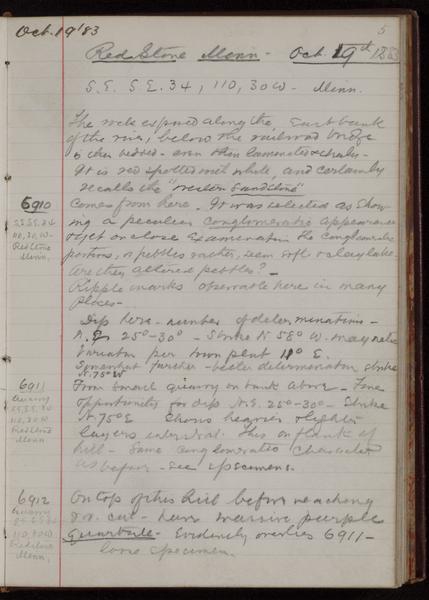 Oct. 19 '83
5
Red Stone Minn - Oct. 19th 1883
S.E. S.E. 34, 110, 30W - Minn.
The rock exposed along the East bank
of the river, below the railroad bridge
is thin bedded - even thin laminated & shaly -
It is red spotted with white, and certainly
recalls the "
6910
Comes from here. It was selected as show-
S.E. S.E. 34
ing a peculiar conglomeratic appearance
110, 30, W -
& yet on close examination the conglomeratic
Red Stone
portions, or pebbles rather, seem soft & clay like.
Minn.
Are they altered pebbles? -
Ripple marks observable here in many
places -
Dip here - number of determinations -
N.E. 25° - 30° - Strike N. 58° W. magnetic
Variation per town plat 11° E.
Somewhat further - better determination strike
N. 75° W
6911
From small quarry on bank above - Fine
Quarry
opportunities for dip N.E. 25° - 30° - Strike
S.E. S.E. 34
N. 75° E Shows heavier & lighter
110, 30 W
Red Stone
layers This on flank of
Minn
hill - Same conglomeratic character
as before - see specimens.
6912
On top of this hill before reaching
Quarry
R.R. cut - here massive purple
S.E. S.E. 34
110, 30 W
Quartzite - Evidently overlies 6911 -
Red Stone
Minn.
some specimen.